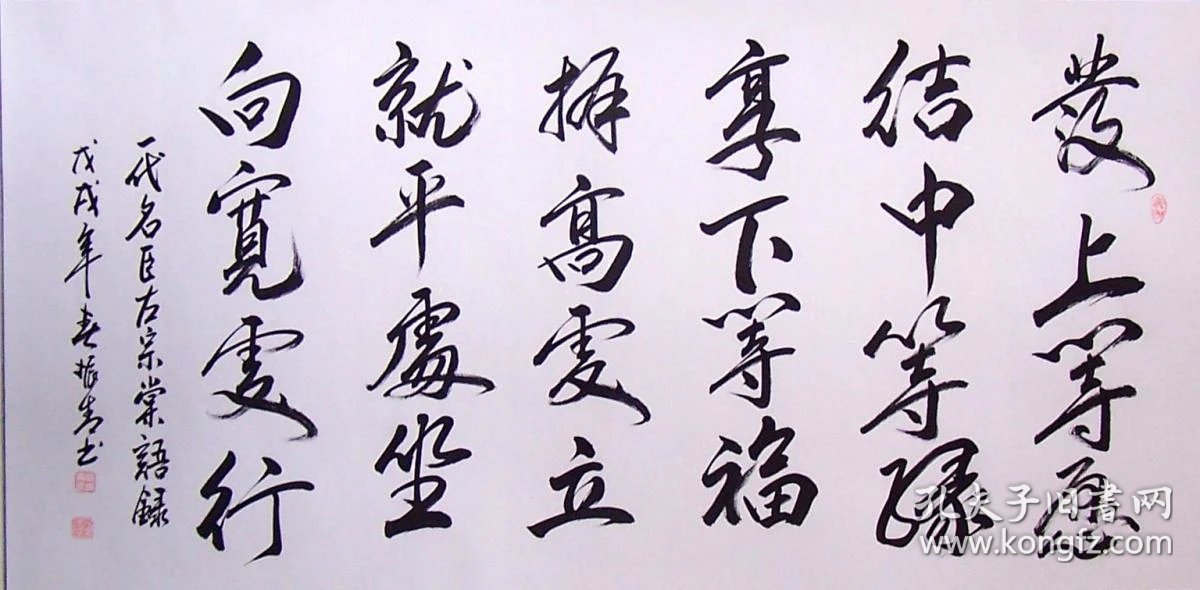 發上等愿
结中等缘
享下等福
择高处立
就平處坐
向寬处行
一代名臣左宗棠語録
戊戌年春振青书
孔夫子旧書网
www.kongfz.com